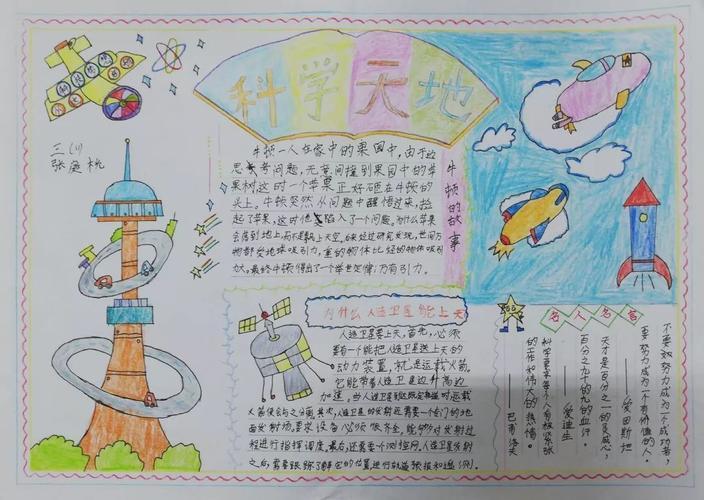 科学天地
三（1）
张庭桃
牛顿的故事
牛顿一人在家中的果园中，由于边
思考问题，无意间撞到果园中的苹
果树，这时一个苹果正好砸在牛顿的
头上。牛顿突然从问题中醒悟过来，捡
起了苹果，这时他又陷入了一个问题，为什么苹果
会落到地上，而不是飘上天空。后来经过研究发现，世间万
物都受地球吸引力，重的物体比轻的物体吸引
伏，最终牛顿得出了一个举世定律：万有引力。
为什么人造卫星能上天
人造卫星要上天，首先，必须
要有一个能把人造卫星送上天的
动力装置，就是运载火箭。
它能带着人造卫星边升高边
加速，当人造卫星到达既定轨道时，运载
火箭便会与之分离，其次，人造卫星的发射还需要一个专门的地
面发射场，要求设备必须齐全，能够对发射过
程进行指挥调度。最后，还需要个测控网，人造卫星发射
之后，需要跟踪了解它的位置，进行轨道预报和遥测。
名人名言
不要努力成为一个成功者，
要努力成为一个有价值的人。
——爱因斯坦
天才是百分之一的灵感，
百分之九十九的血汗。
——爱迪生
科学要求每个人有极紧张
的工作和伟大的热情。
——巴甫洛夫